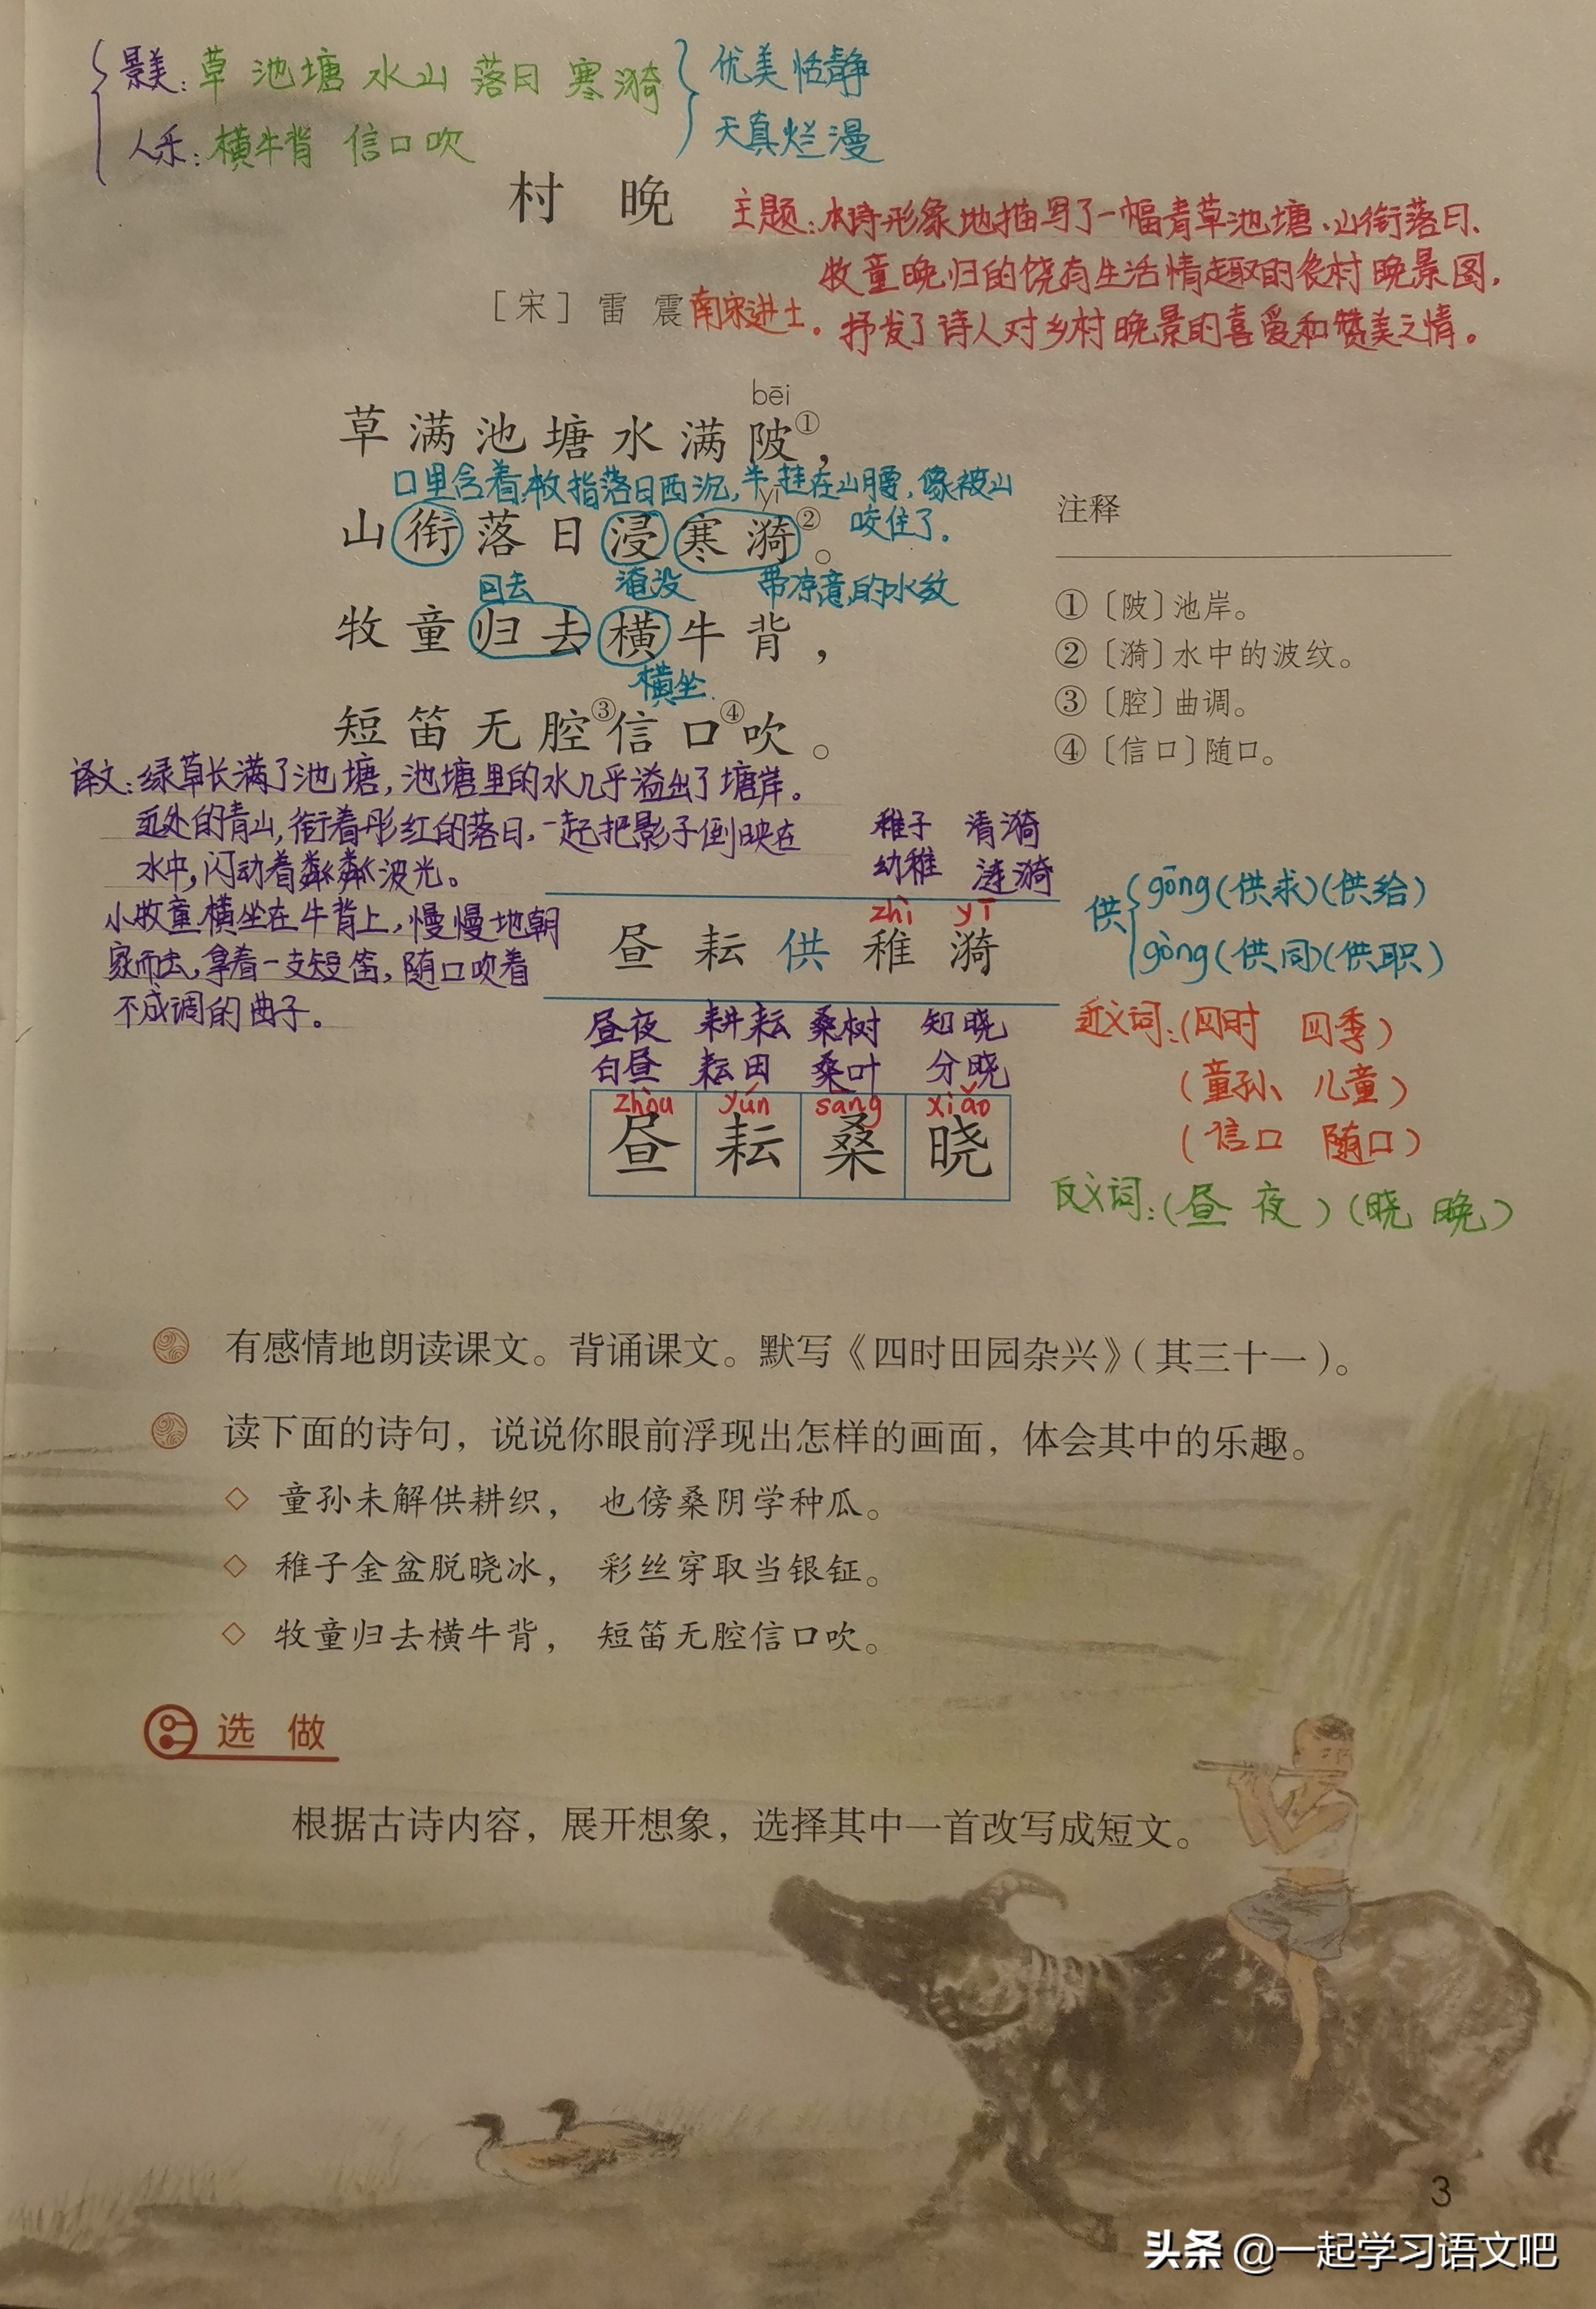 景美：草 池塘 水山 落日 寒漪 优美恬静
人乐：横牛背 信口吹 天真烂漫
村 晚
主题：本诗形象地描写了一幅青草池塘、山衔落日、
牧童晚归的饶有生活情趣的农村晚景图，
抒发了诗人对乡村晚景的喜爱和赞美之情。
［宋］雷 震 南宋进士。
bēi
草满池塘水满陂①，
口里含着，本指落日西沉，半挂在山腰，像被山
咬住了。
yī
山衔落日浸寒漪②。
回去 淹没 带凉意的水纹
牧童归去横牛背，
横坐
短笛无腔③信口④吹。
注释
①〔陂〕池岸。
②〔漪〕水中的波纹。
③〔腔〕曲调。
④〔信口〕随口。
译文：绿草长满了池塘，池塘里的水几乎溢出了塘岸。
近处的青山，衔着彤红的落日，一起把影子倒映在
水中，闪动着粼粼波光。
小牧童横坐在牛背上，慢慢地朝
家而去，拿着一支短笛，随口吹着
不成调的曲子。
稚子 清漪
幼稚 涟漪
zhì yī
昼 耘 供 稚 漪
供 gōng(供求)(供给)
gòng(供同)(供职)
昼夜 耕耘 桑树 知晓
白昼 耘田 桑叶 分晓
zhòu yún sāng xiǎo
昼 耘 桑 晓
近义词：(四时 四季)
(童孙 儿童)
(信口 随口)
反义词：(昼 夜)(晓 晚)
有感情地朗读课文。背诵课文。默写《四时田园杂兴》（其三十一）。
读下面的诗句，说说你眼前浮现出怎样的画面，体会其中的乐趣。
◇ 童孙未解供耕织， 也傍桑阴学种瓜。
◇ 稚子金盆脱晓冰， 彩丝穿取当银钲。
◇ 牧童归去横牛背， 短笛无腔信口吹。
选 做
根据古诗内容，展开想象，选择其中一首改写成短文。
3
头条 @一起学习语文吧